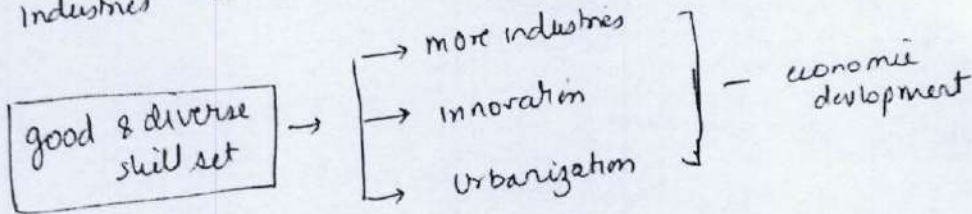 Industries
good & diverse
skill set
more industries
innovation
Urbanization
economic
development